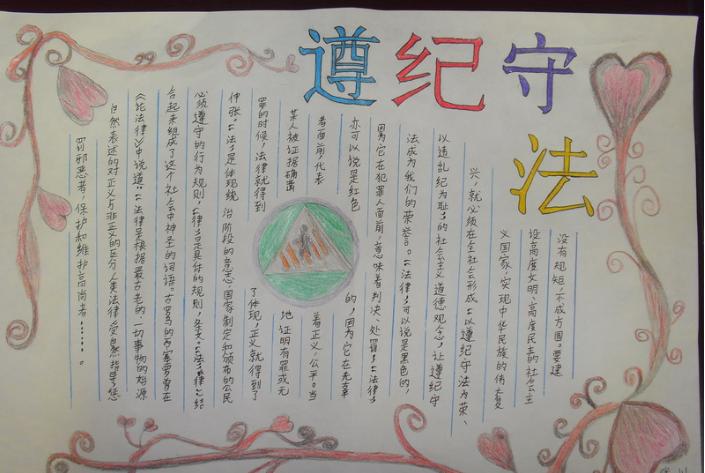 遵纪守
法
没有规矩，不成方圆。要建
设高度文明、高度民主的社会主
义国家，实现中华民族的伟大复
兴，就必须在全社会形成“以遵纪守法为荣、
以违乱纪为耻”的社会主义道德观念，让遵纪守
法成为我们的荣誉。“法律”可以说是黑色的，
因为它在犯罪人面前，意味着判决、处罚；“法律”
亦可以说是红色
的，因为它在无辜
者面前，代表
着正义，公平。当
某人被证据确凿
地证明有罪或无
罪的时候，法律就得到
了体现，正义就得到了
伸张。“法”是体现统治阶段的意志，国家制定和颁布的公民
必须遵守的行为规则，“律”是具体的规则，条文。“法”“律”结
合起来组成了这个社会中神圣的词语。古罗马的西塞罗曾在
《论法律》中说道：“法律是根据最古老的，一切事物的始源
自然表述的对正义与非正义的区分，人类法律受自然指导，惩
罚邪恶者，保护和维护高尚者……。